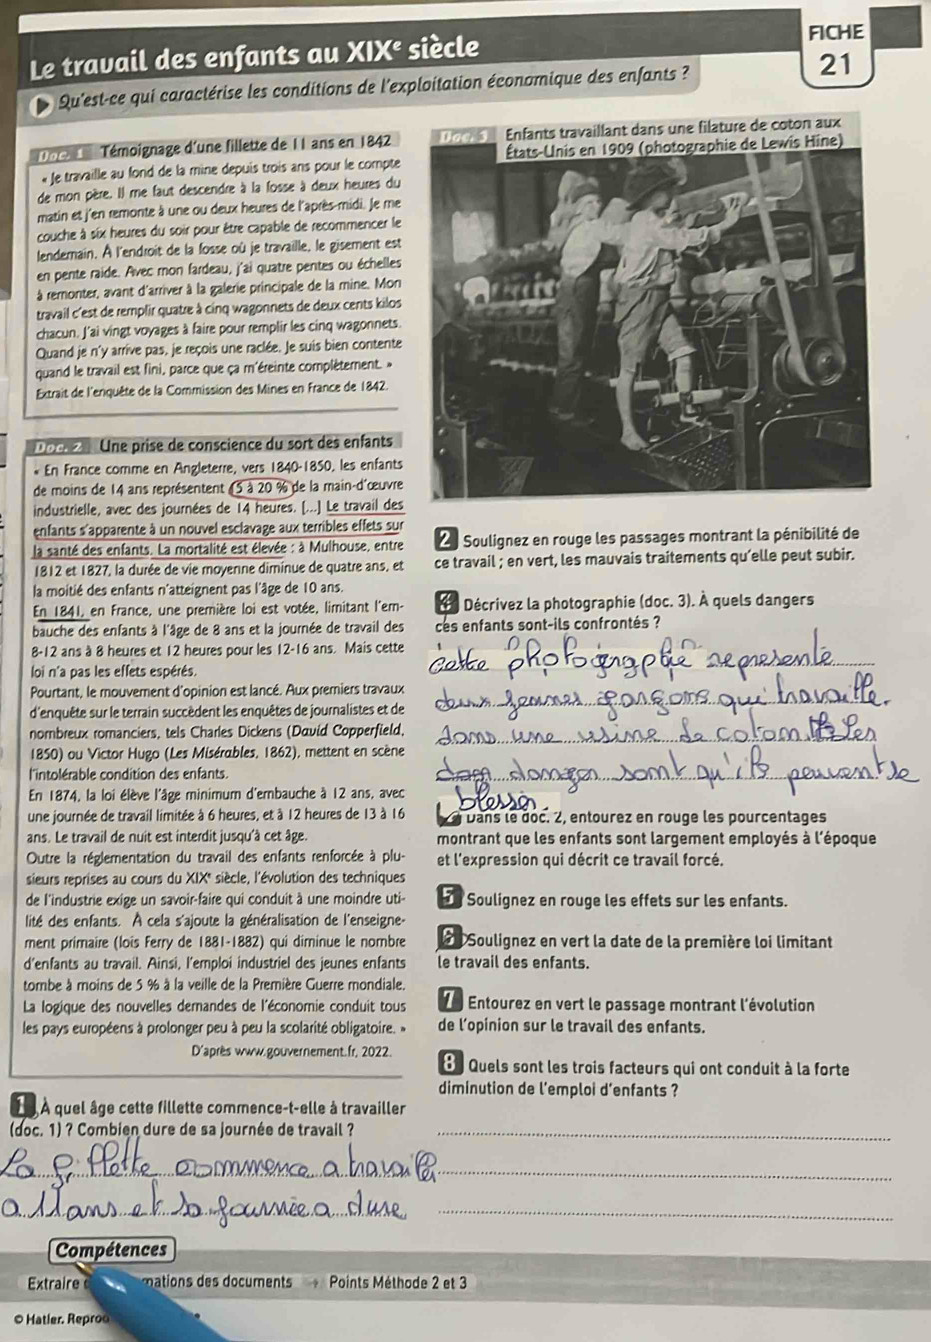 Le travail des enfants au XIXᵉ siècle
FICHE
21
Qu'est-ce qui caractérise les conditions de l'exploitation économique des enfants ?
Doc. 1 Témoignage d'une fillette de 11 ans en 1842
« Je travaille au fond de la mine depuis trois ans pour le compte
de mon père. Il me faut descendre à la fosse à deux heures du
matin et j'en remonte à une ou deux heures de l'après-midi. Je me
couche à six heures du soir pour être capable de recommencer le
lendemain. À l'endroit de la fosse où je travaille, le gisement est
en pente raide. Avec mon fardeau, j'ai quatre pentes ou échelles
à remonter, avant d'arriver à la galerie principale de la mine. Mon
travail c'est de remplir quatre à cinq wagonnets de deux cents kilos
chacun. J'ai vingt voyages à faire pour remplir les cinq wagonnets.
Quand je n'y arrive pas, je reçois une raclée. Je suis bien contente
quand le travail est fini, parce que ça m'éreinte complètement. »
Extrait de l'enquête de la Commission des Mines en France de 1842.
Doc. 2 Une prise de conscience du sort des enfants
« En France comme en Angleterre, vers 1840-1850, les enfants
de moins de 14 ans représentent 15 à 20 % de la main-d'œuvre
industrielle, avec des journées de 14 heures. [...] Le travail des
enfants s'apparente à un nouvel esclavage aux terribles effets sur
la santé des enfants. La mortalité est élevée : à Mulhouse, entre
1812 et 1827, la durée de vie moyenne diminue de quatre ans, et
la moitié des enfants n'atteignent pas l'âge de 10 ans.
En 1841, en France, une première loi est votée, limitant l'em-
bauche des enfants à l'âge de 8 ans et la journée de travail des
8-12 ans à 8 heures et 12 heures pour les 12-16 ans. Mais cette
loi n'a pas les effets espérés.
Pourtant, le mouvement d'opinion est lancé. Aux premiers travaux
d'enquête sur le terrain succèdent les enquêtes de journalistes et de
nombreux romanciers, tels Charles Dickens (David Copperfield,
1850) ou Victor Hugo (Les Misérables, 1862), mettent en scène
l'intolérable condition des enfants.
En 1874, la loi élève l'âge minimum d'embauche à 12 ans, avec
une journée de travail limitée à 6 heures, et à 12 heures de 13 à 16
ans. Le travail de nuit est interdit jusqu'à cet âge.
Outre la réglementation du travail des enfants renforcée à plu-
sieurs reprises au cours du XIXᵉ siècle, l'évolution des techniques
de l'industrie exige un savoir-faire qui conduit à une moindre uti-
lité des enfants. À cela s'ajoute la généralisation de l'enseigne-
ment primaire (lois Ferry de 1881-1882) qui diminue le nombre
d'enfants au travail. Ainsi, l'emploi industriel des jeunes enfants
tombe à moins de 5 % à la veille de la Première Guerre mondiale.
La logique des nouvelles demandes de l'économie conduit tous
les pays européens à prolonger peu à peu la scolarité obligatoire. »
D'après www.gouvernement.fr, 2022.
1 À quel âge cette fillette commence-t-elle à travailler
(doc. 1) ? Combien dure de sa journée de travail ?
La fillette commence a travaille
a 11ans et sa journée a dure
Doc. 3 Enfants travaillant dans une filature de coton aux
États-Unis en 1909 (photographie de Lewis Hine)
2 Soulignez en rouge les passages montrant la pénibilité de
ce travail ; en vert, les mauvais traitements qu'elle peut subir.
Décrivez la photographie (doc. 3). À quels dangers
ces enfants sont-ils confrontés ?
cette photographie represente
deux jeunes garçons qui travaille.
dans une usine de coton. les
danger sont qu'ils peuvent se
blesser.
Dans le doc. 2, entourez en rouge les pourcentages
montrant que les enfants sont largement employés à l'époque
et l'expression qui décrit ce travail forcé.
5 Soulignez en rouge les effets sur les enfants.
6 Soulignez en vert la date de la première loi limitant
le travail des enfants.
7 Entourez en vert le passage montrant l'évolution
de l'opinion sur le travail des enfants.
8 Quels sont les trois facteurs qui ont conduit à la forte
diminution de l'emploi d'enfants ?
Compétences
Extraire mations des documents → Points Méthode 2 et 3
© Hatier. Reprod